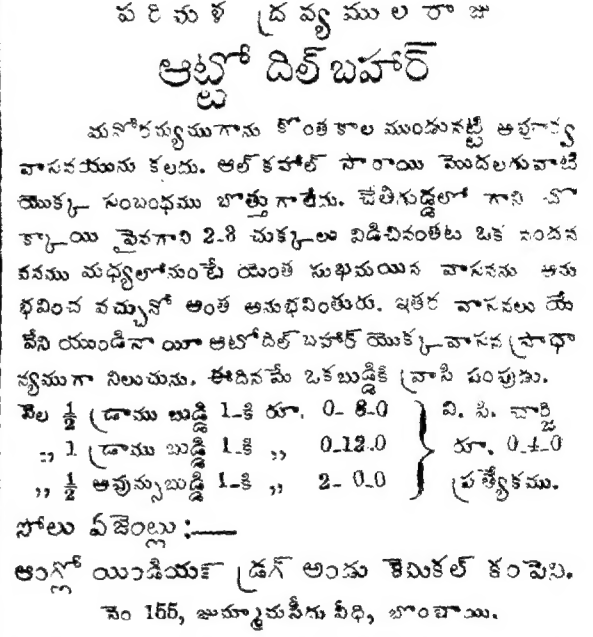 పరిమళ ద్రవ్యములరాజు
ఆట్టో దిల్ బహార్
మనోరమ్యముగాను కొంతకాల ముండునట్టి అపూర్వ
వాసనయును కలదు. ఆల్కహాల్ సారాయి మొదలగువాటి
యొక్క సంబంధము బొత్తుగా లేదు. చేతిగుడ్డలో గాని చొ
క్కాయి పైనగాని 2-3 చుక్కలు విడిచినంతట ఒక నందన
వనము మధ్యలోనుంటే యెంత సుఖమయిన వాసనను అను
భవించ వచ్చునో అంత అనుభవింతురు. ఇతర వాసనలు యే
వేని యుండినా యీ ఆటోదిల్ బహార్ యొక్క వాసన ప్రాధా
న్యముగా నిలుచును. ఈదినమే ఒకబుడ్డికి వ్రాసి పంపుడు.
వెల ½ డ్రాము బుడ్డి 1-కి రూ. 0-8-0 } వి. పి. చార్జి
,, 1 డ్రాము బుడ్డి 1-కి ,, 0-12-0 } రూ. 0-4-0
,, ½ అవున్సుబుడ్డి 1-కి ,, 2-0-0 } ప్రత్యేకము.
సోలు ఏజెంట్లు :—
ఆంగ్లో యిండియన్ డ్రగ్ అండు కెమికల్ కంపెని.
నెం 155, జుమ్మామసీదు వీధి, బొంబాయి.